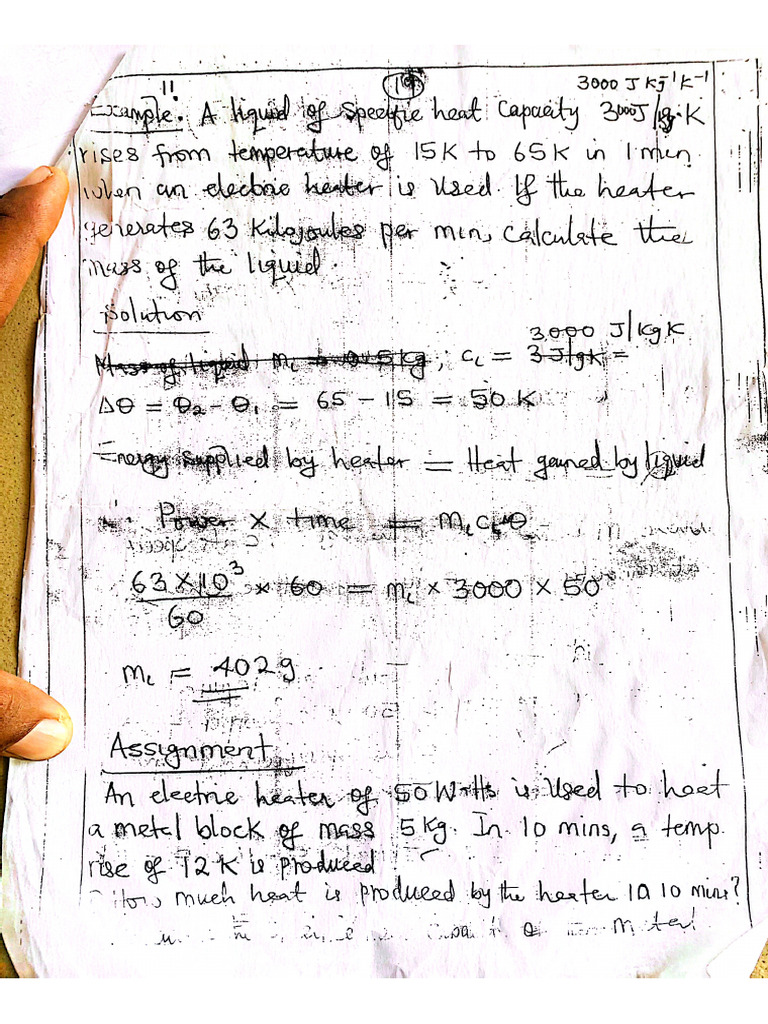 11
19
3000 J Kg⁻¹K⁻¹
Example: A liquid of Specific heat Capacity 3000J/kg.K
rises from temperature of 15K to 65K in 1 min
when an electric heater is Used. If the heater
generates 63 Kilojoules per min, Calculate the
mass of the liquid.
Solution
3000 J/KgK
Mass of liquid m_L = 0.5 kg, c_L = 3 J/gK =
Δθ = θ₂ - θ₁ = 65 - 15 = 50 K
Energy supplied by heater = Heat gained by liquid
Power × time = m_L c_L θ
63 × 10³ / 60 × 60 = m_L × 3000 × 50
m_L = 402g
Assignment
An electric heater of 50 Watts is Used to heat
a metal block of mass 5 kg. In 10 mins, a temp.
rise of 12 K is produced
How much heat is produced by the heater in 10 mins?